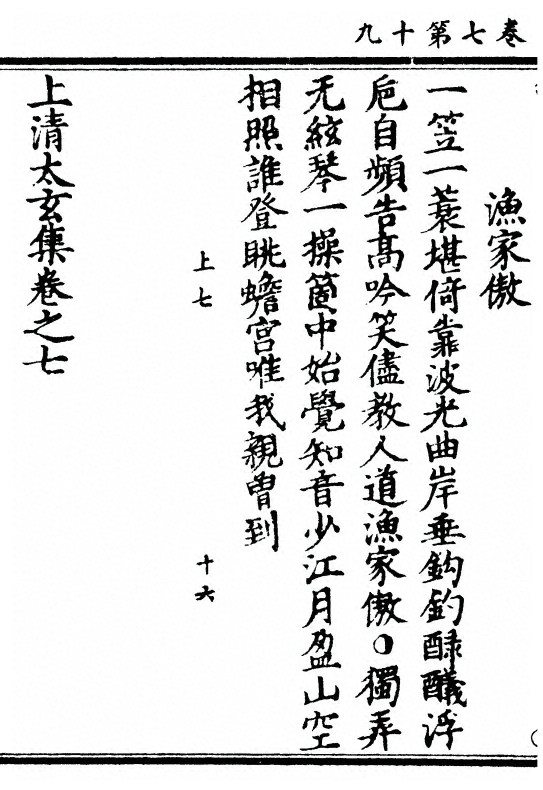 卷七第十九
漁家傲
一笠一蓑堪倚靠波光曲岸垂鈎釣醁醿浮
巵自頻告高吟笑儘教人道漁家傲○獨弄
无絃琴一操箇中始覺知音少江月盈山空
相照誰登眺蟾宫唯我親曾到
上七
十六
上清太玄集卷之七